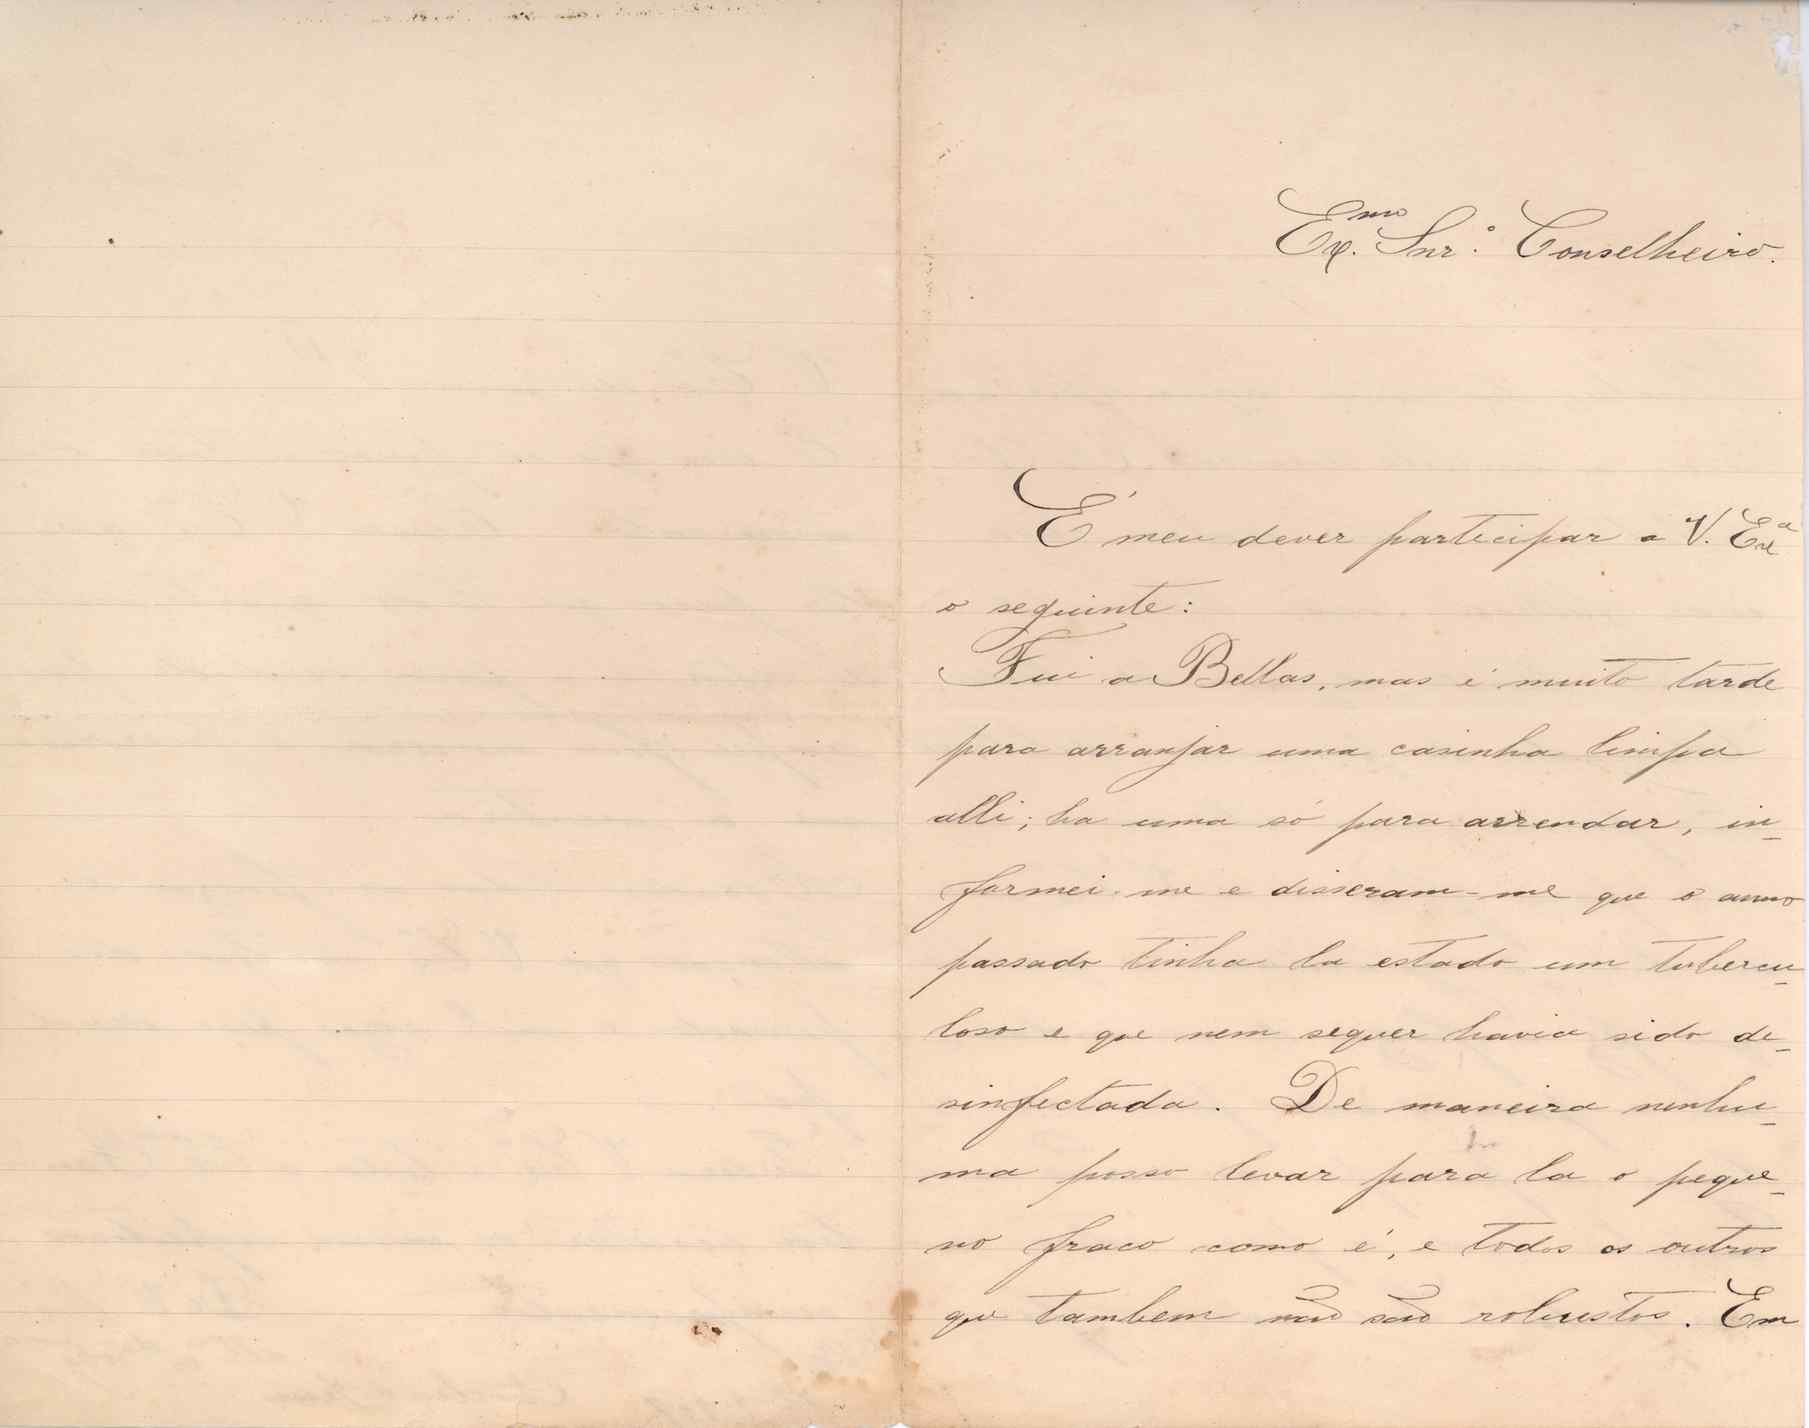 Ex.mo Snr.º Conselheiro.
É meu dever participar a V. Exª
o seguinte:
Fui a Bellas, mas é muito tarde
para arranjar uma casinha limpa
alli; ha uma só para arrendar, in-
formei-me e disseram-me que o anno
passado tinha la estado um tubercu-
loso e que nem sequer havia sido de-
sinfectada. De maneira nenhu-
ma posso levar para la o peque-
no fraco como é, e todos os outros
que tambem não são robustos. Em